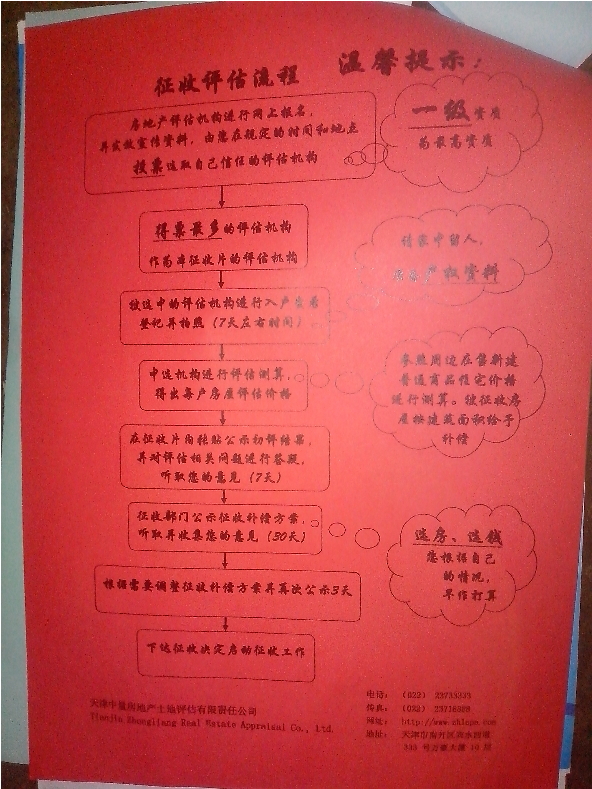 征收评估流程
温馨提示：
房地产评估机构进行网上报名，
并发放宣传资料，由您在规定的时间和地点
投票选取自己信任的评估机构
一级资质
为最高资质
得票最多的评估机构
作为本征收片的评估机构
请家中留人，
产权资料
被选中的评估机构进行入户查看
登记并拍照（7天左右时间）
中选机构进行评估测算，
得出每户房屋评估价格
参照周边在售新建
普通商品住宅价格
进行测算。被征收房
屋按建筑面积给予
补偿
在征收片内张贴公示初评结果，
并对评估相关问题进行答疑，
听取您的意见（7天）
征收部门公示征收补偿方案，
听取并收集您的意见（30天）
选房、选钱
您根据自己
的情况，
早作打算
根据需要调整征收补偿方案并再次公示3天
下达征收决定启动征收工作
天津中量房地产土地评估有限责任公司
Tianjin Zhongliang Real Estate Appraisal Co., Ltd.
电话：（022）23733333
传真：（022）
网址：
地址：天津市南开区
333 号 大厦 10 层